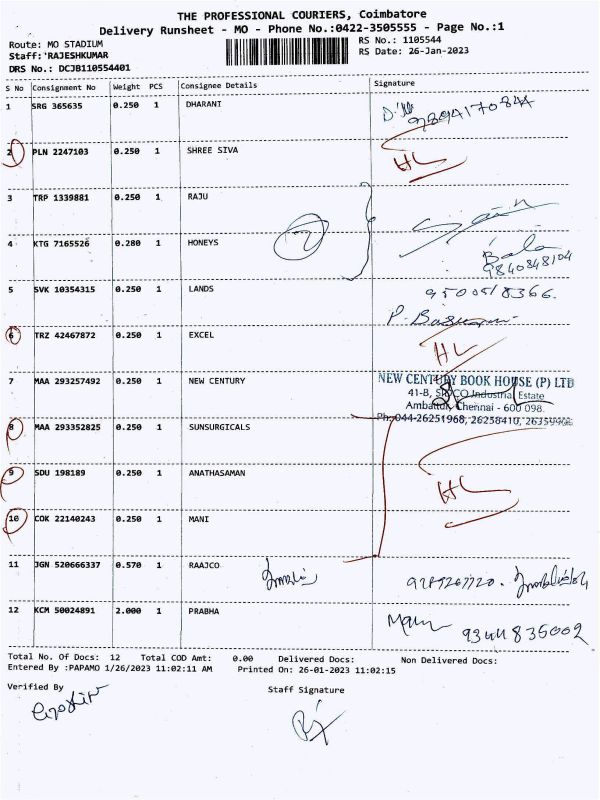 THE PROFESSIONAL COURIERS, Coimbatore
Delivery Runsheet - MO - Phone No.:0422-3505555 - Page No.:1
Route: MO STADIUM
Staff:'RAJESHKUMAR
DRS No.: DCJB110554401
RS No.: 1105544
RS Date: 26-Jan-2023
S No Consignment No Weight PCS Consignee Details Signature
1 SRG 365635 0.250 1 DHARANI
2 PLN 2247103 0.250 1 SHREE SIVA HL
3 TRP 1339881 0.250 1 RAJU
4 KTG 7165526 0.280 1 HONEYS Bala
9840848104
5 SVK 10354315 0.250 1 LANDS
6 TRZ 42467872 0.250 1 EXCEL HL
7 MAA 293257492 0.250 1 NEW CENTURY NEW CENTURY BOOK HOUSE (P) LTD
41-B, SIDCO Industrial Estate
Ambattur, Chennai - 600 098.
Ph: 044-26251968, 26258410, 26359906
8 MAA 293352825 0.250 1 SUNSURGICALS
9 SDU 198189 0.250 1 ANATHASAMAN HL
10 COK 22140243 0.250 1 MANI
11 JGN 520666337 0.570 1 RAAJCO
12 KCM 50024891 2.000 1 PRABHA 9344835002
Total No. Of Docs: 12 Total COD Amt: 0.00 Delivered Docs: Non Delivered Docs:
Entered By :PAPAMO 1/26/2023 11:02:11 AM Printed On: 26-01-2023 11:02:15
Verified By
Staff Signature